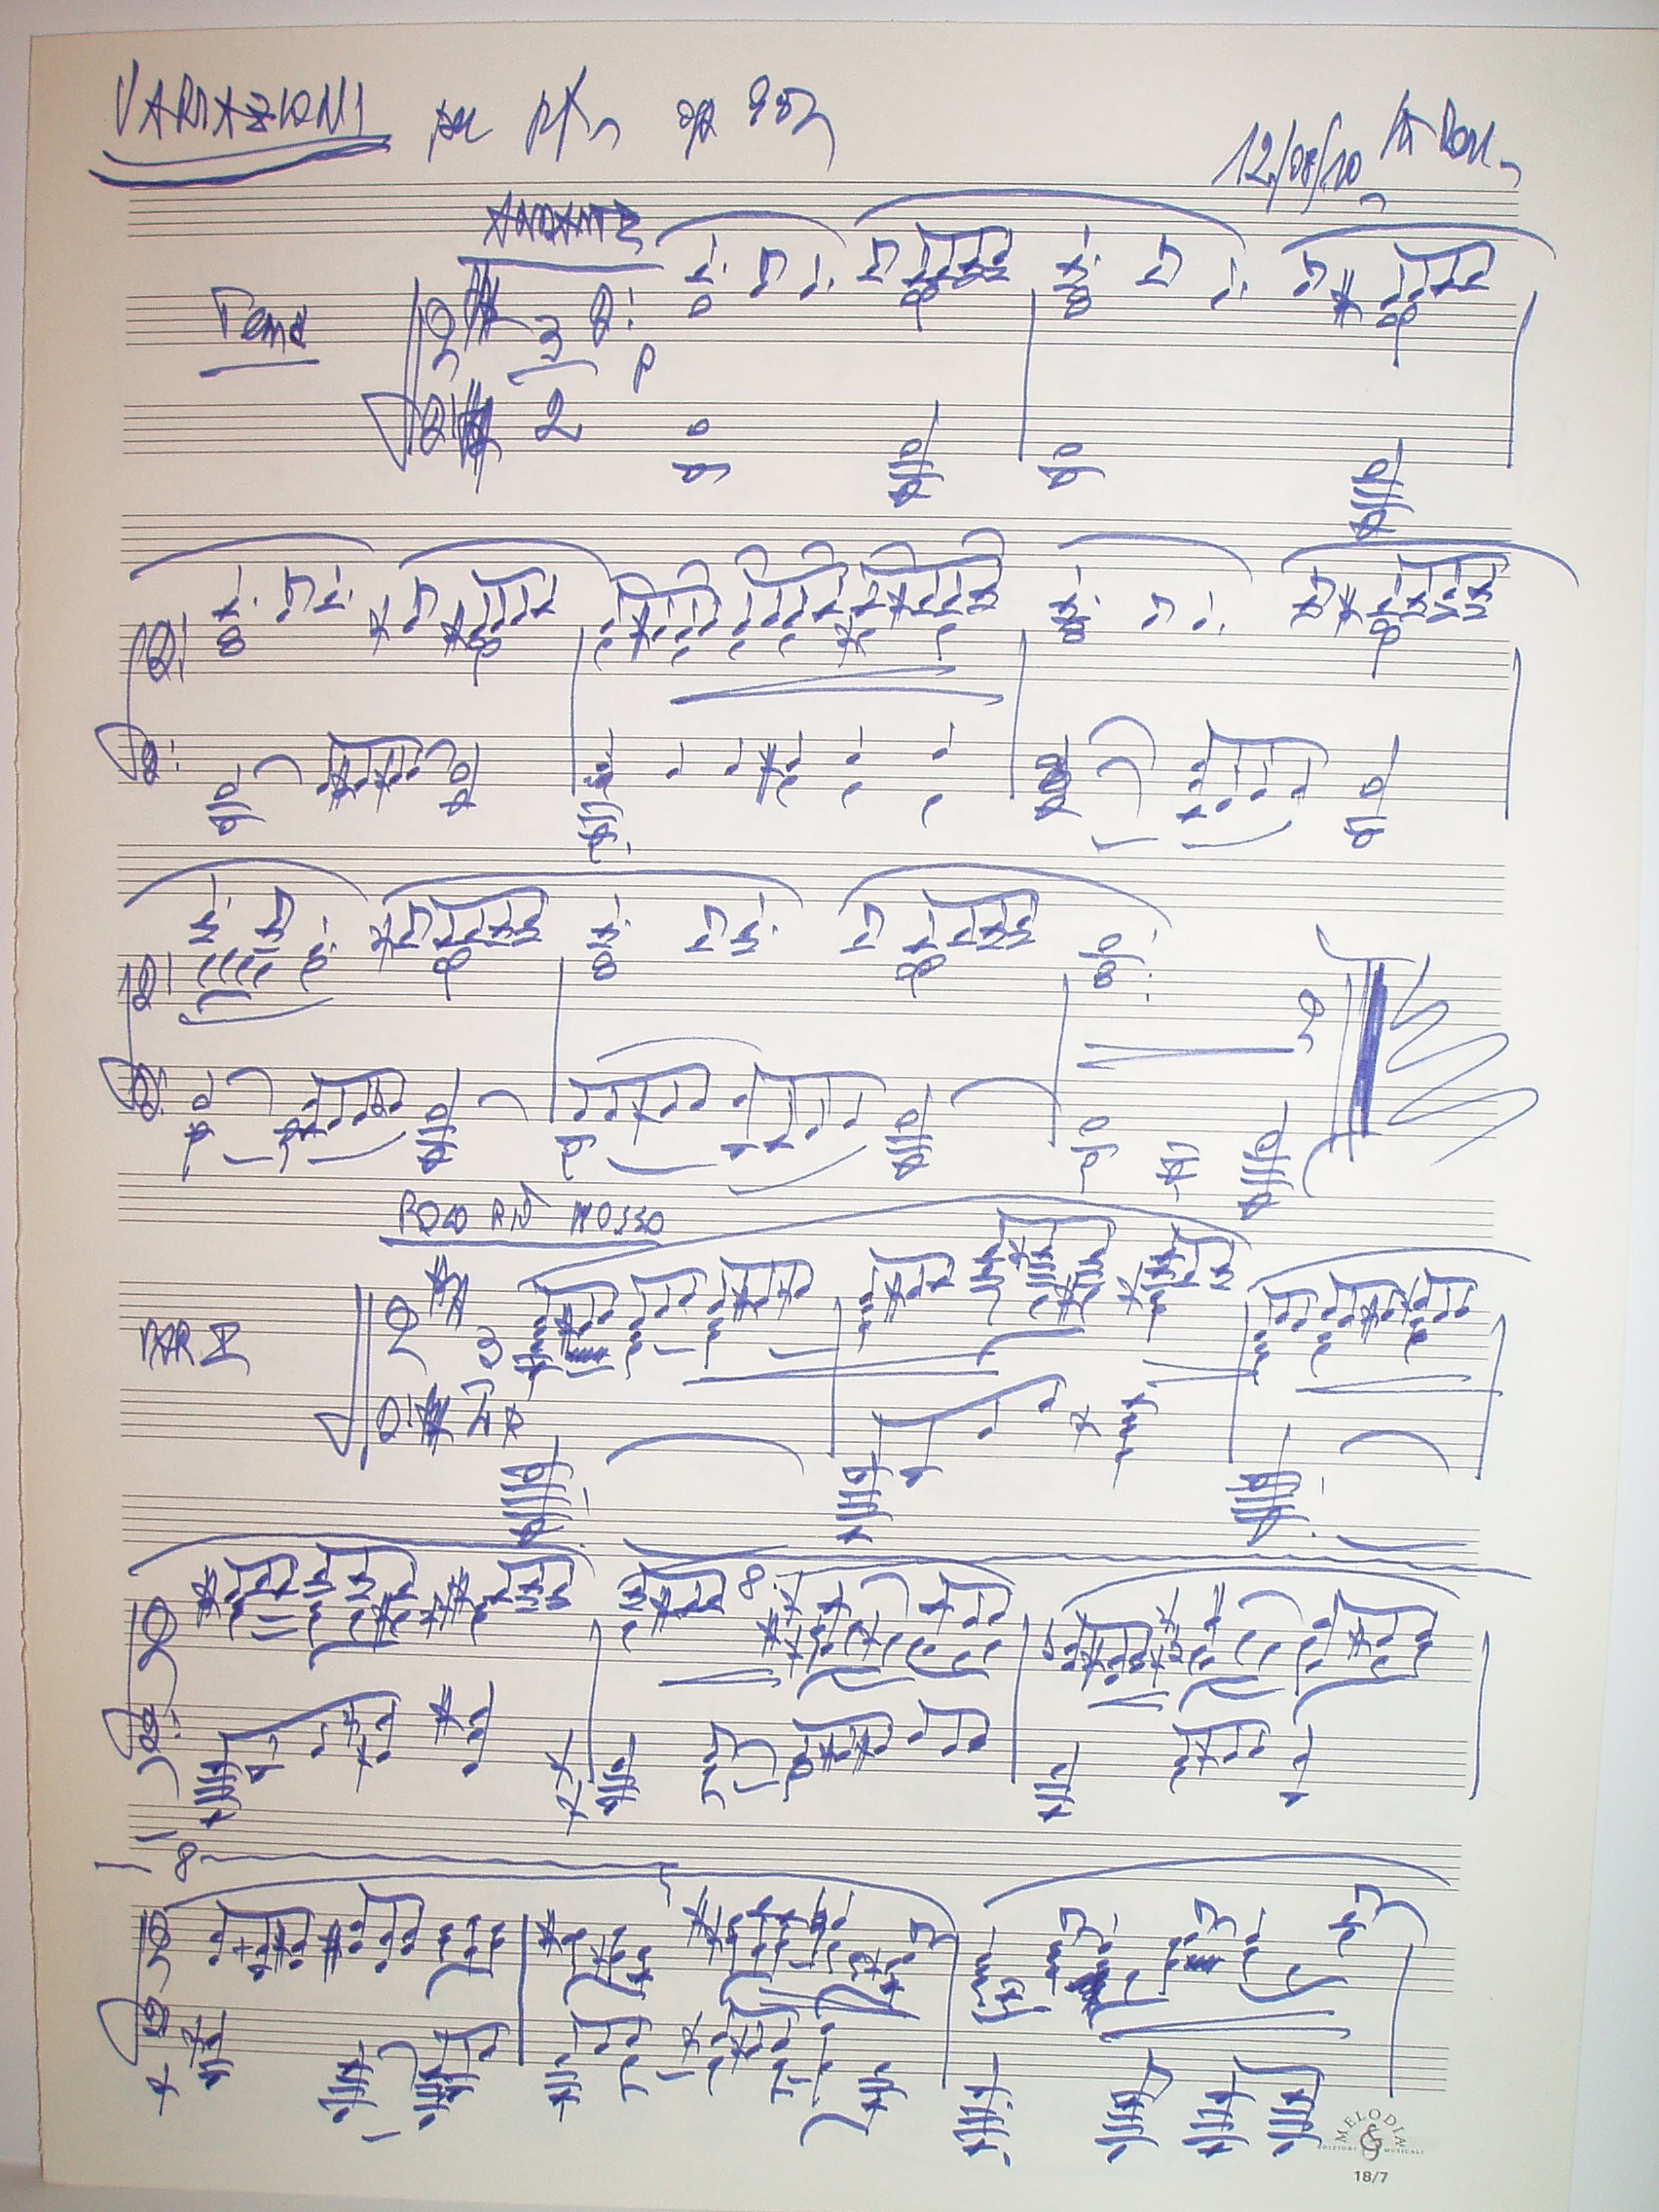 VARIAZIONI per pf. op 952
12/08/10
ANDANTE
Tema
3
2
p
POCO PIÙ MOSSO
VAR I
3
2
p
8
8
MELODIA
EDIZIONI MUSICALI
18/7